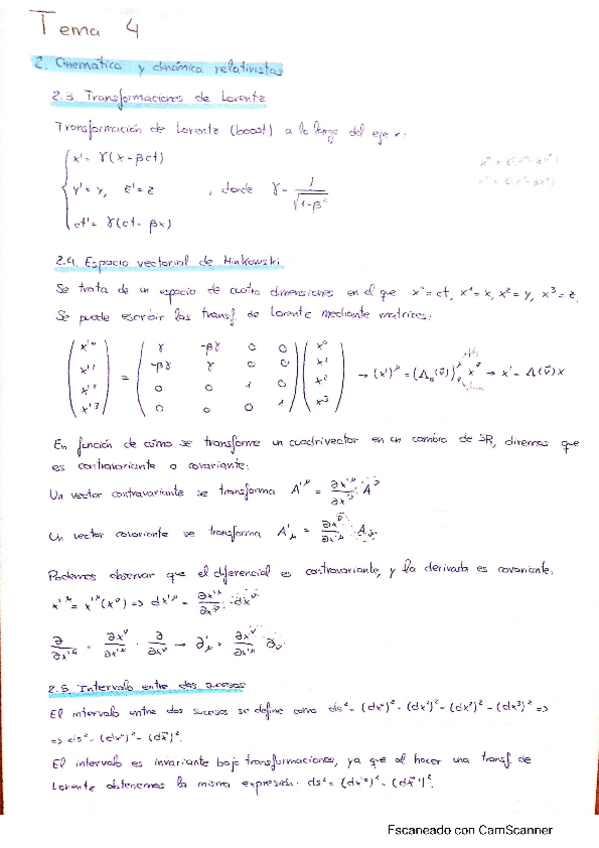 Tema 4
2. Cinemática y dinámica relativistas
2.3. Transformaciones de Lorentz
Transformación de Lorentz (boost) a lo largo del eje x.
x' = γ(x - βct)
y' = y, z' = z , donde γ = 1/√(1-β²)
ct' = γ(ct - βx)
2.4. Espacio vectorial de Minkowski
Se trata de un espacio de cuatro dimensiones en el que x⁰ = ct, x¹ = x, x² = y, x³ = z.
Se puede escribir las transf. de Lorentz mediante matrices:
(x'⁰ x'¹ x'² x'³) = (γ -βγ 0 0; -βγ γ 0 0; 0 0 1 0; 0 0 0 1) (x⁰ x¹ x² x³) → (x')^μ = (Λ_B(v⃗))^μ_ν x^ν → x' = Λ(v⃗)x
En función de cómo se transforme un cuadrivector en un cambio de SR, diremos que
es contravariante o covariante:
Un vector contravariante se transforma A'^μ = ∂x'^μ/∂x^ν A^ν
Un vector covariante se transforma A'_μ = ∂x^ν/∂x'^μ A_ν
Podemos observar que el diferencial es contravariante, y la derivada es covariante:
x'^μ = x'^μ(x^ν) => dx'^μ = ∂x'^μ/∂x^ν · dx^ν
∂/∂x'^μ = ∂x^ν/∂x'^μ · ∂/∂x^ν → ∂'_μ = ∂x^ν/∂x'^μ ∂_ν
2.5. Intervalo entre dos sucesos
El intervalo entre dos sucesos se define como ds² = (dx⁰)² - (dx¹)² - (dx²)² - (dx³)² =>
=> ds² = (dx⁰)² - (dx⃗)².
El intervalo es invariante bajo transformaciones, ya que al hacer una transf. de
Lorentz obtenemos la misma expresión: ds² = (dx'⁰)² - (dx⃗')².
Escaneado con CamScanner